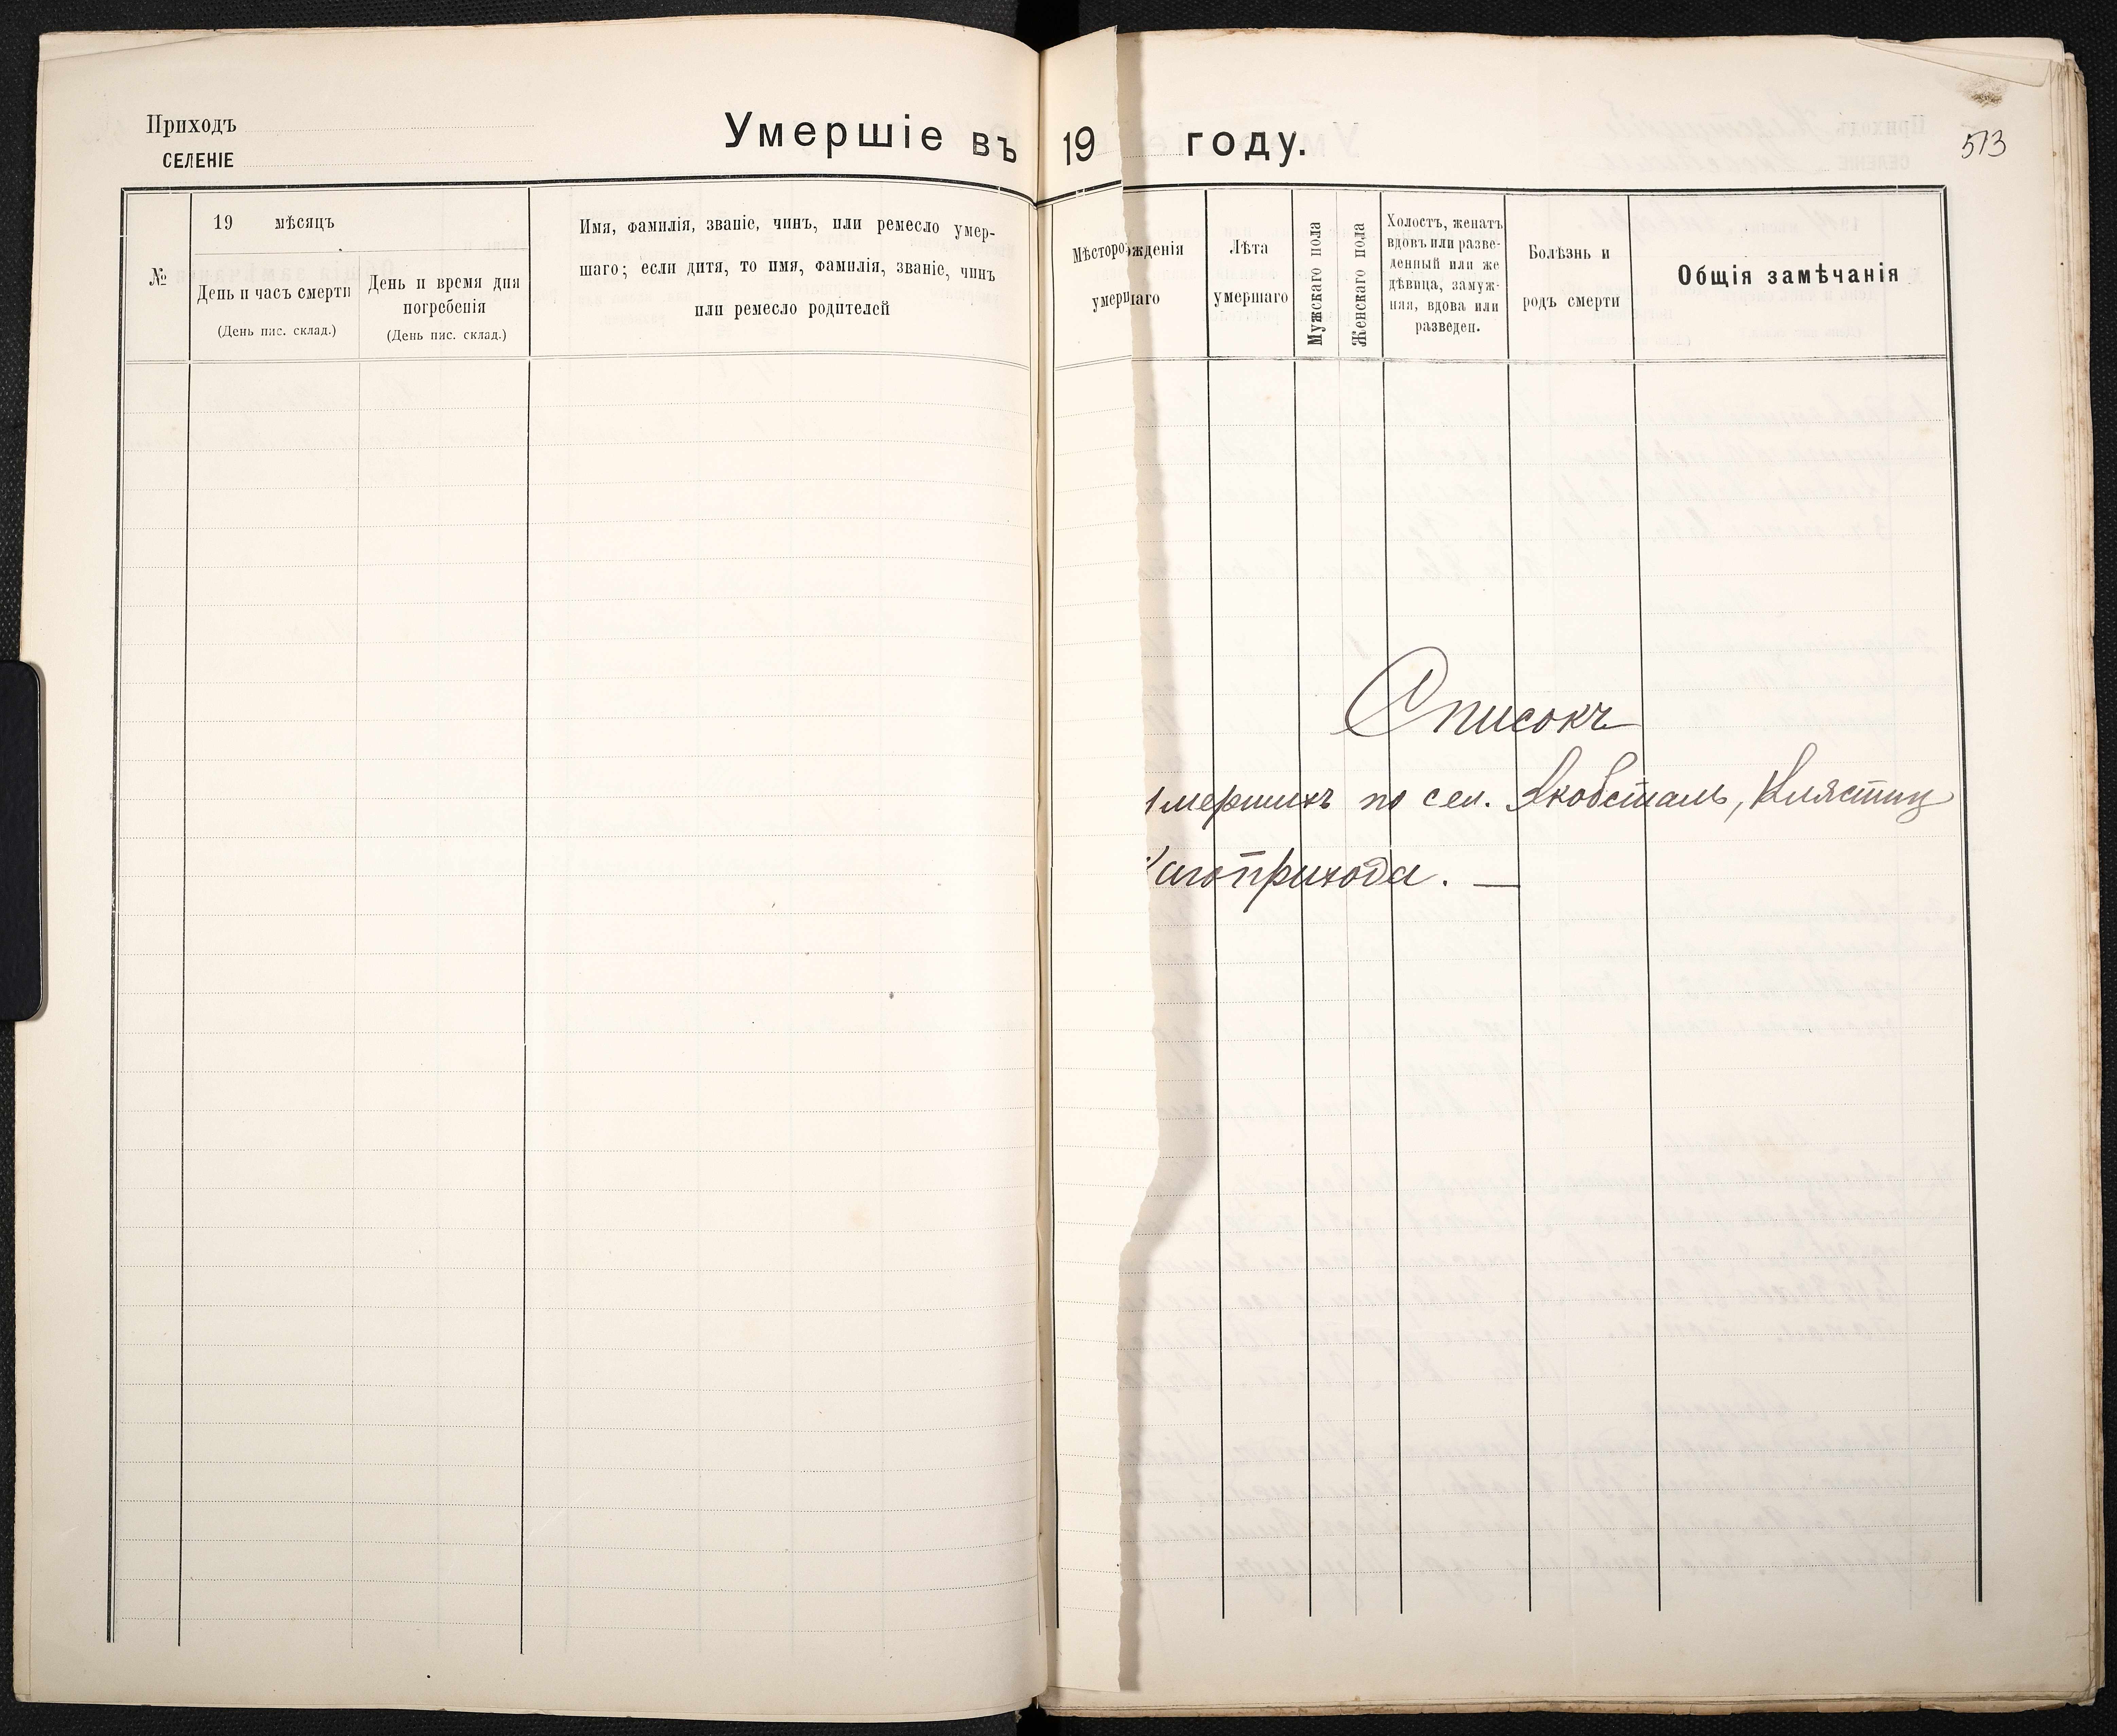 Приходъ
СЕЛЕНІЕ
Умершіе въ 19 году.
513
№
19 мѣсяцъ
День и часъ смерти
(День пис. склад.)
День и время дня
погребенія
(День пис. склад.)
Имя, фамилія, званіе, чинъ, или ремесло умер-
шаго; если дитя, то имя, фамилія, званіе, чинъ
или ремесло родителей
Мѣсторожденія
умершаго
Лѣта
умершаго
Мужскаго пола
Женскаго пола
Холостъ, женатъ
вдовъ или разве-
денный или же
дѣвица, замуж-
няя, вдова или
разведен.
Болѣзнь и
родъ смерти
Общія замѣчанія
Списокъ
умершихъ по сел. Якобсталь, Клястиц
каго прихода. —